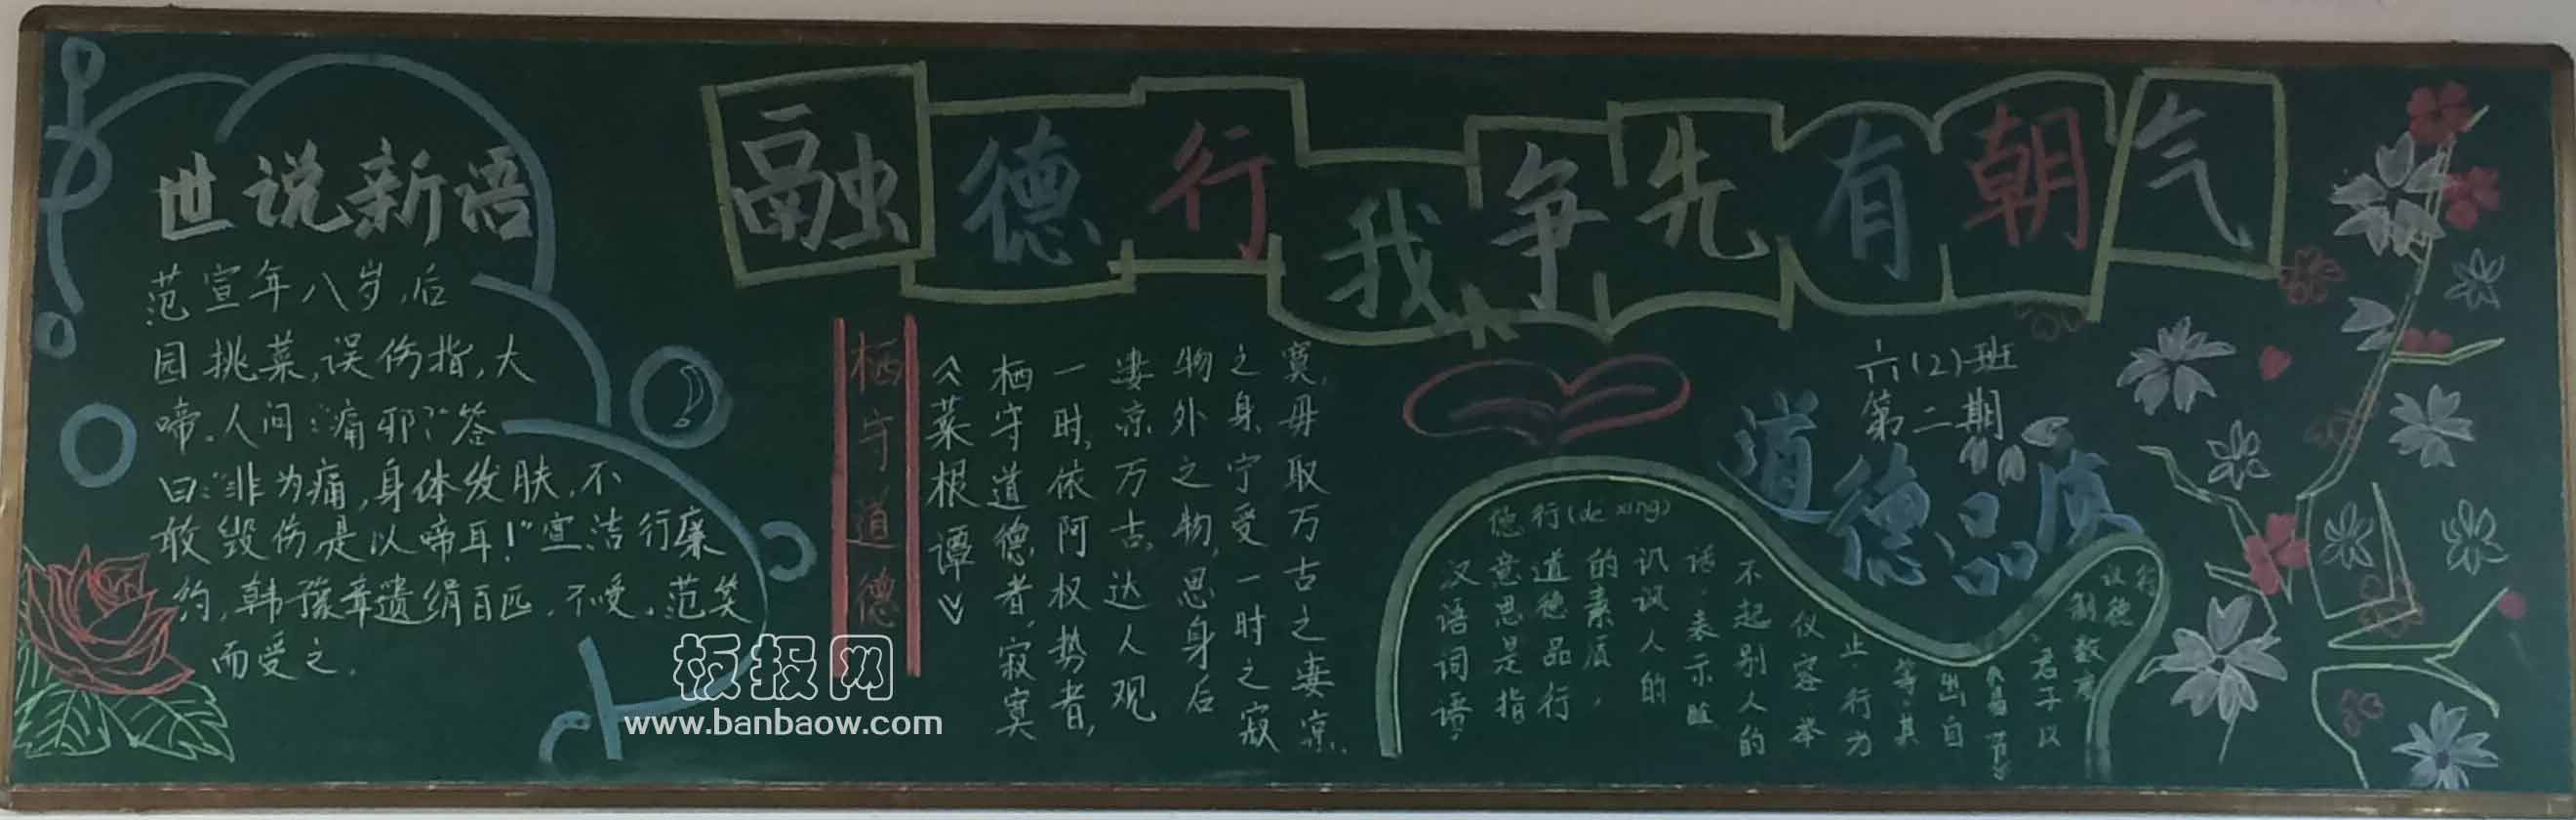 融德行我争先有朝气
世说新语
范宣年八岁,后
园挑菜,误伤指,大
啼。人问:“痛邪?”答
曰:“非为痛,身体发肤,不
敢毁伤,是以啼耳!”宣洁行廉
约,韩豫章遗绢百匹,不受。范笑
而受之。
栖守道德
《菜根谭》
栖守道德者,寂寞
一时,依阿权势者,
凄凉万古。达人观
物外之物,思身后
之身,宁受一时之寂
寞,毋取万古之凄凉。
六(2)班
第二期
道德品质
德行(de xing)
汉语词语,
意思是指
道德品行
的素质,
讥讽人的
话,表示瞧
不起别人的
仪容举
止行为
等。其
出自
《易·节》
“君子以
制数度
议德行
板报网
www.banbaow.com